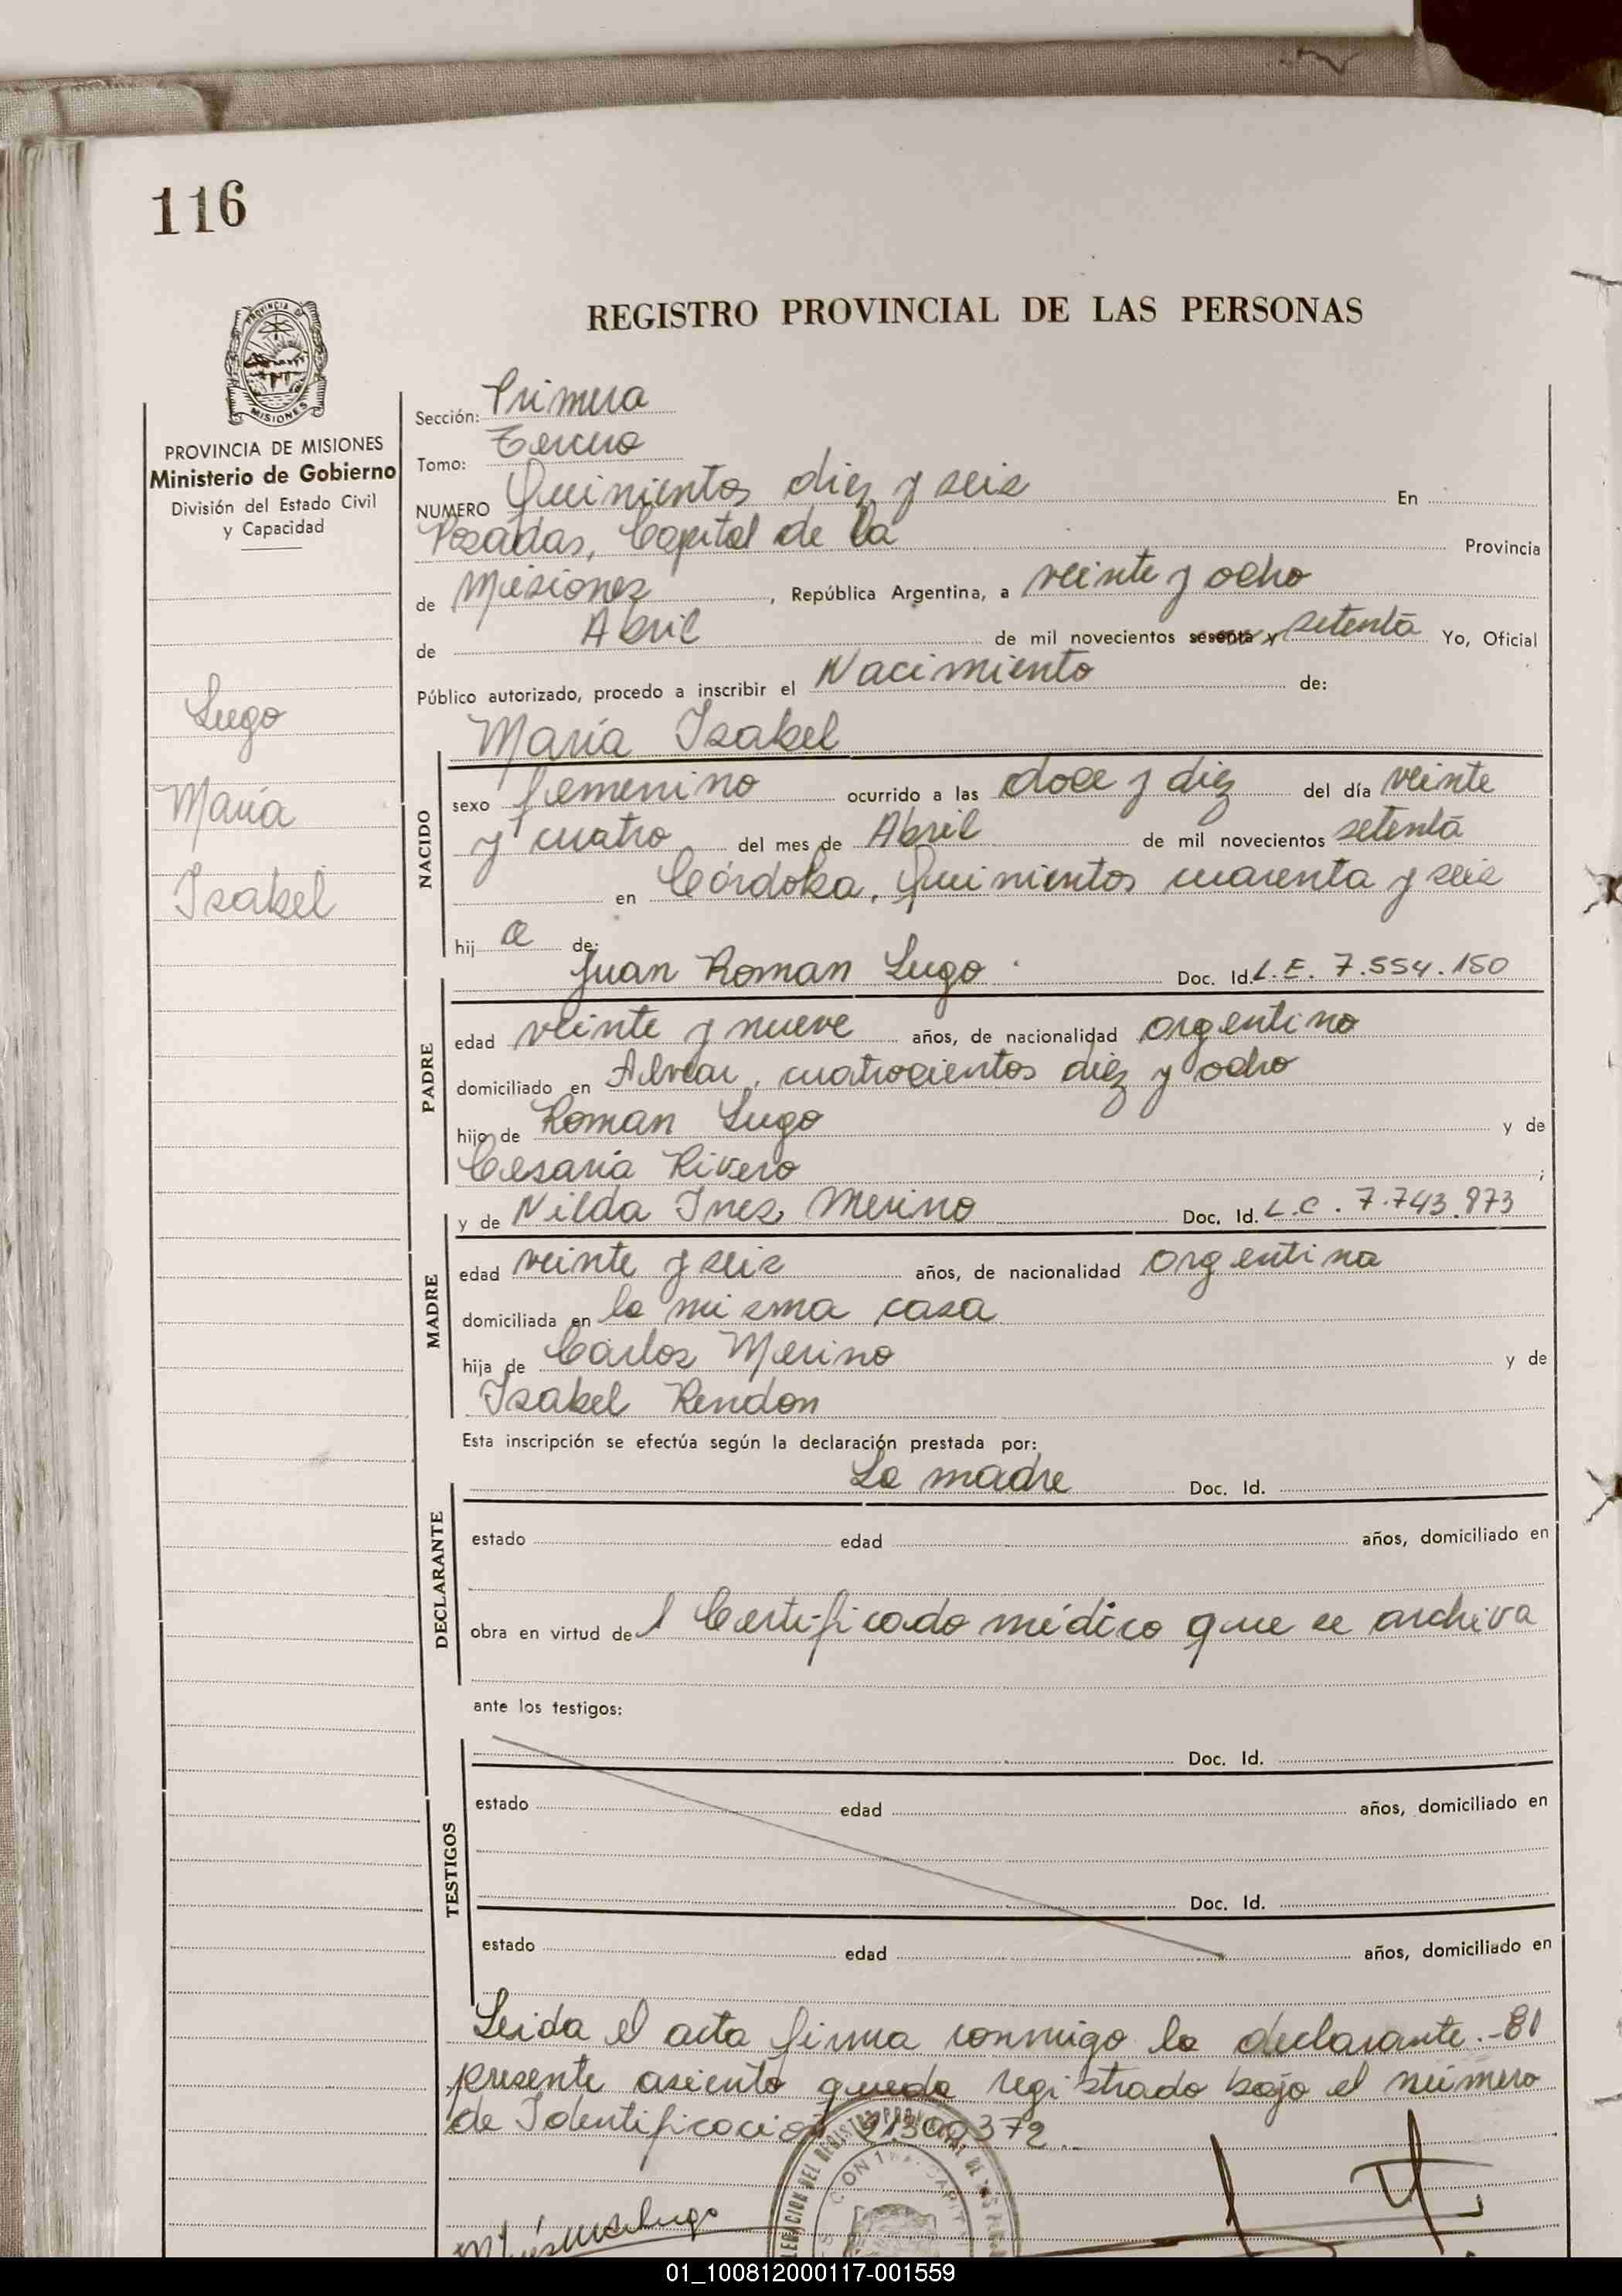 116
PROVINCIA DE MISIONES
MISIONES
PROVINCIA DE MISIONES
Ministerio de Gobierno
División del Estado Civil
y Capacidad
Lugo
María
Isabel
REGISTRO PROVINCIAL DE LAS PERSONAS
Sección: Primera
Tomo: Tercero
NUMERO Quinientos diez y seis En
Posadas, Capital de la Provincia
de Misiones, República Argentina, a veinte y ocho
de Abril de mil novecientos sesenta y setenta Yo, Oficial
Público autorizado, procedo a inscribir el Nacimiento de:
María Isabel
NACIDO
sexo femenino ocurrido a las doce y diez del día veinte
y cuatro del mes de Abril de mil novecientos setenta
en Córdoba, Quinientos cuarenta y seis
hij a de:
Juan Roman Lugo Doc. Id. L.E. 7.554.150
PADRE
edad veinte y nueve años, de nacionalidad argentino
domiciliado en Alvear, cuatrocientos diez y ocho
hijo de Roman Lugo y de
Cesaria Rivero ;
y de Nilda Ines Merino Doc. Id. L.C. 7.743.873
MADRE
edad veinte y seis años, de nacionalidad argentina
domiciliada en la misma casa
hija de Carlos Merino y de
Isabel Rendon
Esta inscripción se efectúa según la declaración prestada por:
La madre Doc. Id.
DECLARANTE
estado edad años, domiciliado en
obra en virtud del Certificado médico que se archiva
ante los testigos:
Doc. Id.
TESTIGOS
estado edad años, domiciliado en
Doc. Id.
estado edad años, domiciliado en
Leida el acta firma conmigo la declarante.- El
presente asiento queda registrado bajo el número
de Identificación 21300372..
01_100812000117-001559